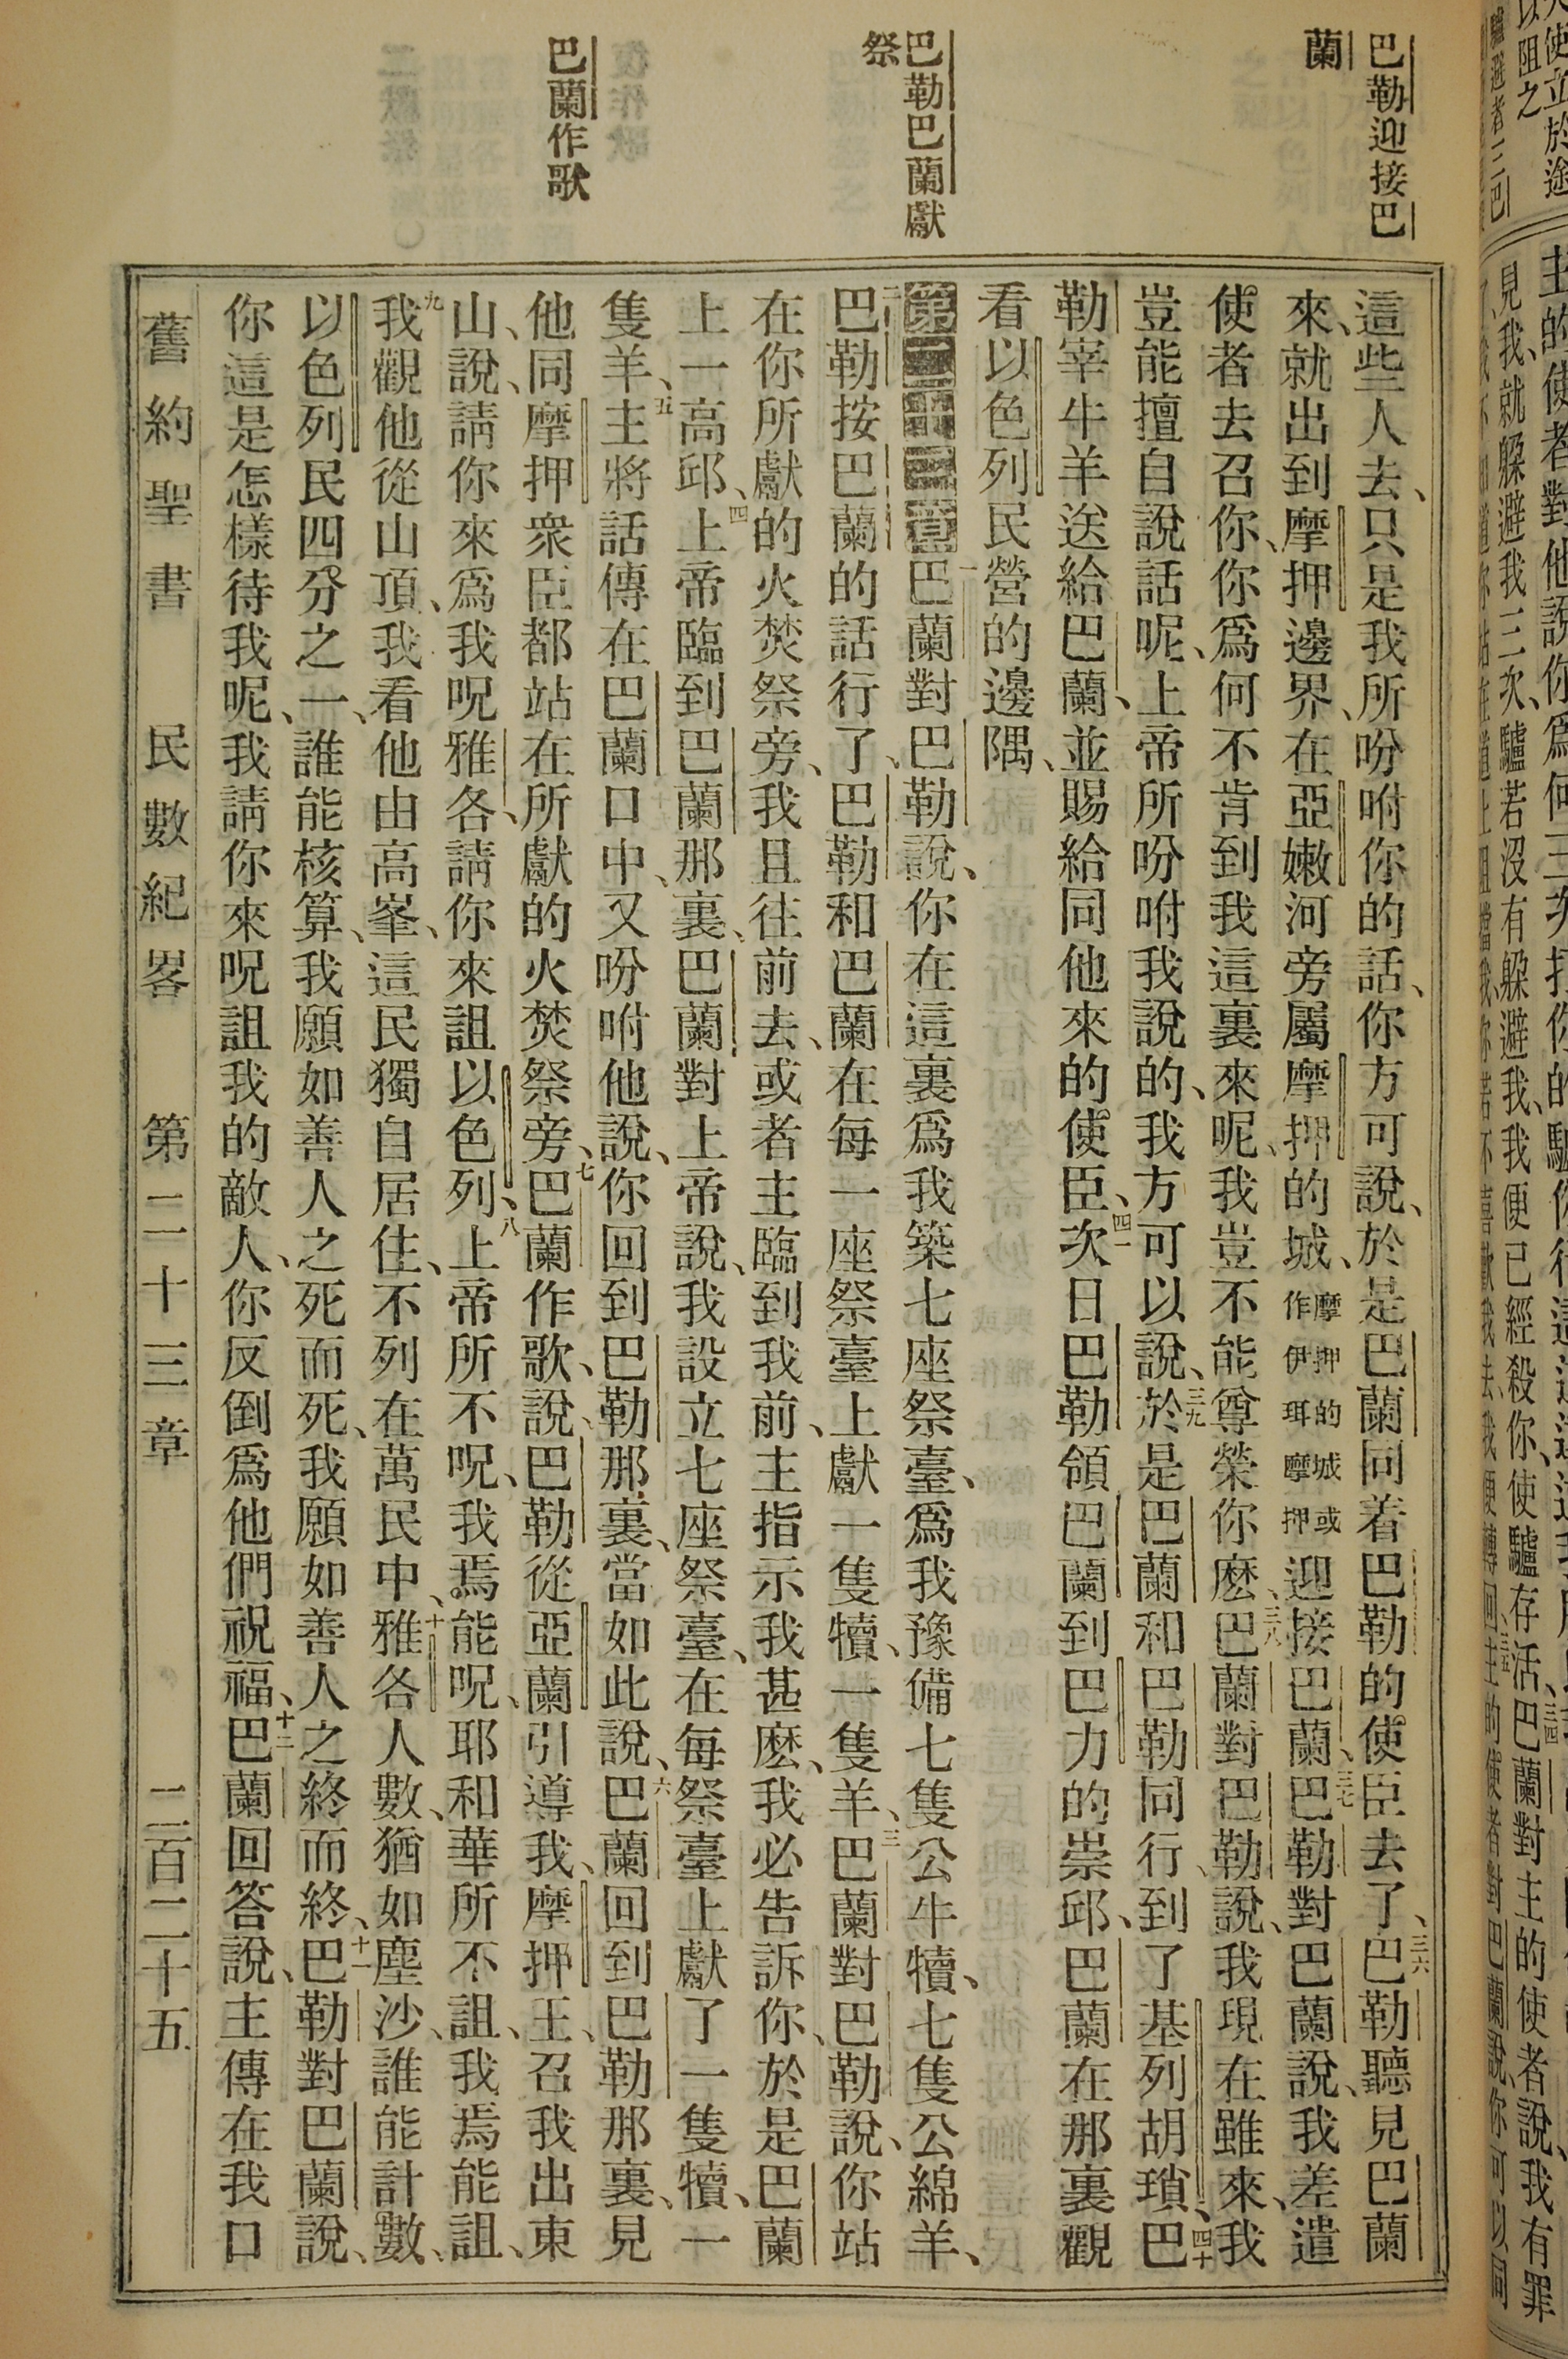 巴勒迎接巴
蘭
巴勒巴蘭獻
祭
巴蘭作歌
這些人去、只是我所吩咐你的話、你方可說、於是巴蘭同着巴勒的使臣去了、三六巴勒聽見巴蘭
來、就出到摩押邊界、在亞嫩河旁屬摩押的城、摩押的城或作伊珥摩押迎接巴蘭、三七巴勒對巴蘭說、我差遣
使者去召你、你爲何不肯到我這裏來呢、我豈不能尊榮你麽、三八巴蘭對巴勒說、我現在雖來、我
豈能擅自說話呢、上帝所吩咐我說的、我方可以說、三九於是巴蘭和巴勒同行、到了基列胡瑣、四十巴
勒宰牛羊送給巴蘭、並賜給同他來的使臣、四一次日巴勒領巴蘭到巴力的崇邱、巴蘭在那裏觀
看以色列民營的邊隅、
第二十三章一巴蘭對巴勒說、你在這裏爲我築七座祭臺、爲我豫備七隻公牛犢、七隻公綿羊、
二巴勒按巴蘭的話行了、巴勒和巴蘭在每一座祭臺上獻一隻犢、一隻羊、三巴蘭對巴勒說、你站
在你所獻的火焚祭旁、我且往前去、或者主臨到我前、主指示我甚麽、我必告訴你、於是巴蘭
上一高邱、四上帝臨到巴蘭那裏、巴蘭對上帝說、我設立七座祭臺、在每祭臺上獻了一隻犢、一
隻羊、五主將話傳在巴蘭口中、又吩咐他說、你回到巴勒那裏、當如此說、六巴蘭回到巴勒那裏、見
他同摩押衆臣都站在所獻的火焚祭旁、七巴蘭作歌、說、巴勒從亞蘭引導我、摩押王、召我出東
山、說、請你來爲我呪雅各、請你來詛以色列、八上帝所不呪、我焉能呪、耶和華所不詛、我焉能詛、
九我觀他從山頂、我看他由高峯、這民獨自居住、不列在萬民中、十雅各人數、猶如塵沙、誰能計數、
以色列民四分之一、誰能核算、我願如善人之死而死、我願如善人之終而終、十一巴勒對巴蘭說、
你這是怎樣待我呢、我請你來呪詛我的敵人、你反倒爲他們祝福、十二巴蘭回答說、主傳在我口
舊約聖書 民數紀畧 第二十三章 二百二十五